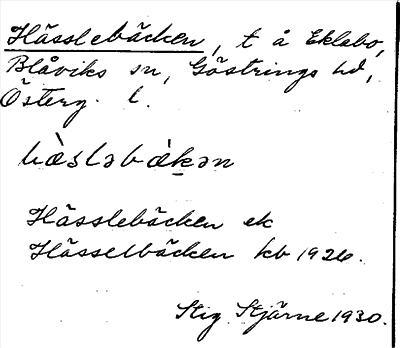 Hässlebäcken, t å Eklabo,
Blåviks sn, Göstrings hd,
Österg. l.
hàslabàkan
Hässlebäcken ek
Hässelbäcken kb 1926.
Stig Stjärne 1930.